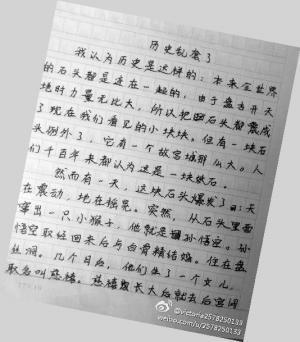 历史乱套了
我认为历史是这样的：本来全世界
的石头都是连在一起的，由于盘古开天
地时力量无比大，所以把石头都震成
了现在我们看见的小块块。但有一块石
头例外了，它有一个故宫城那么大。人
们千百年来都认为这是一块坡石。
然而有一天，这块石头爆发了：天
在震动，地在摇晃。突然，从石头里面
窜出一只小猴子，他就是孙悟空。孙
悟空取经回来后与白骨精结婚。住在盘
丝洞。几个月后，他们生了一个女儿，
取名叫慈禧。慈禧长大后就去后宫闹
@victoria2578250133
weibo.com/u/2578250133